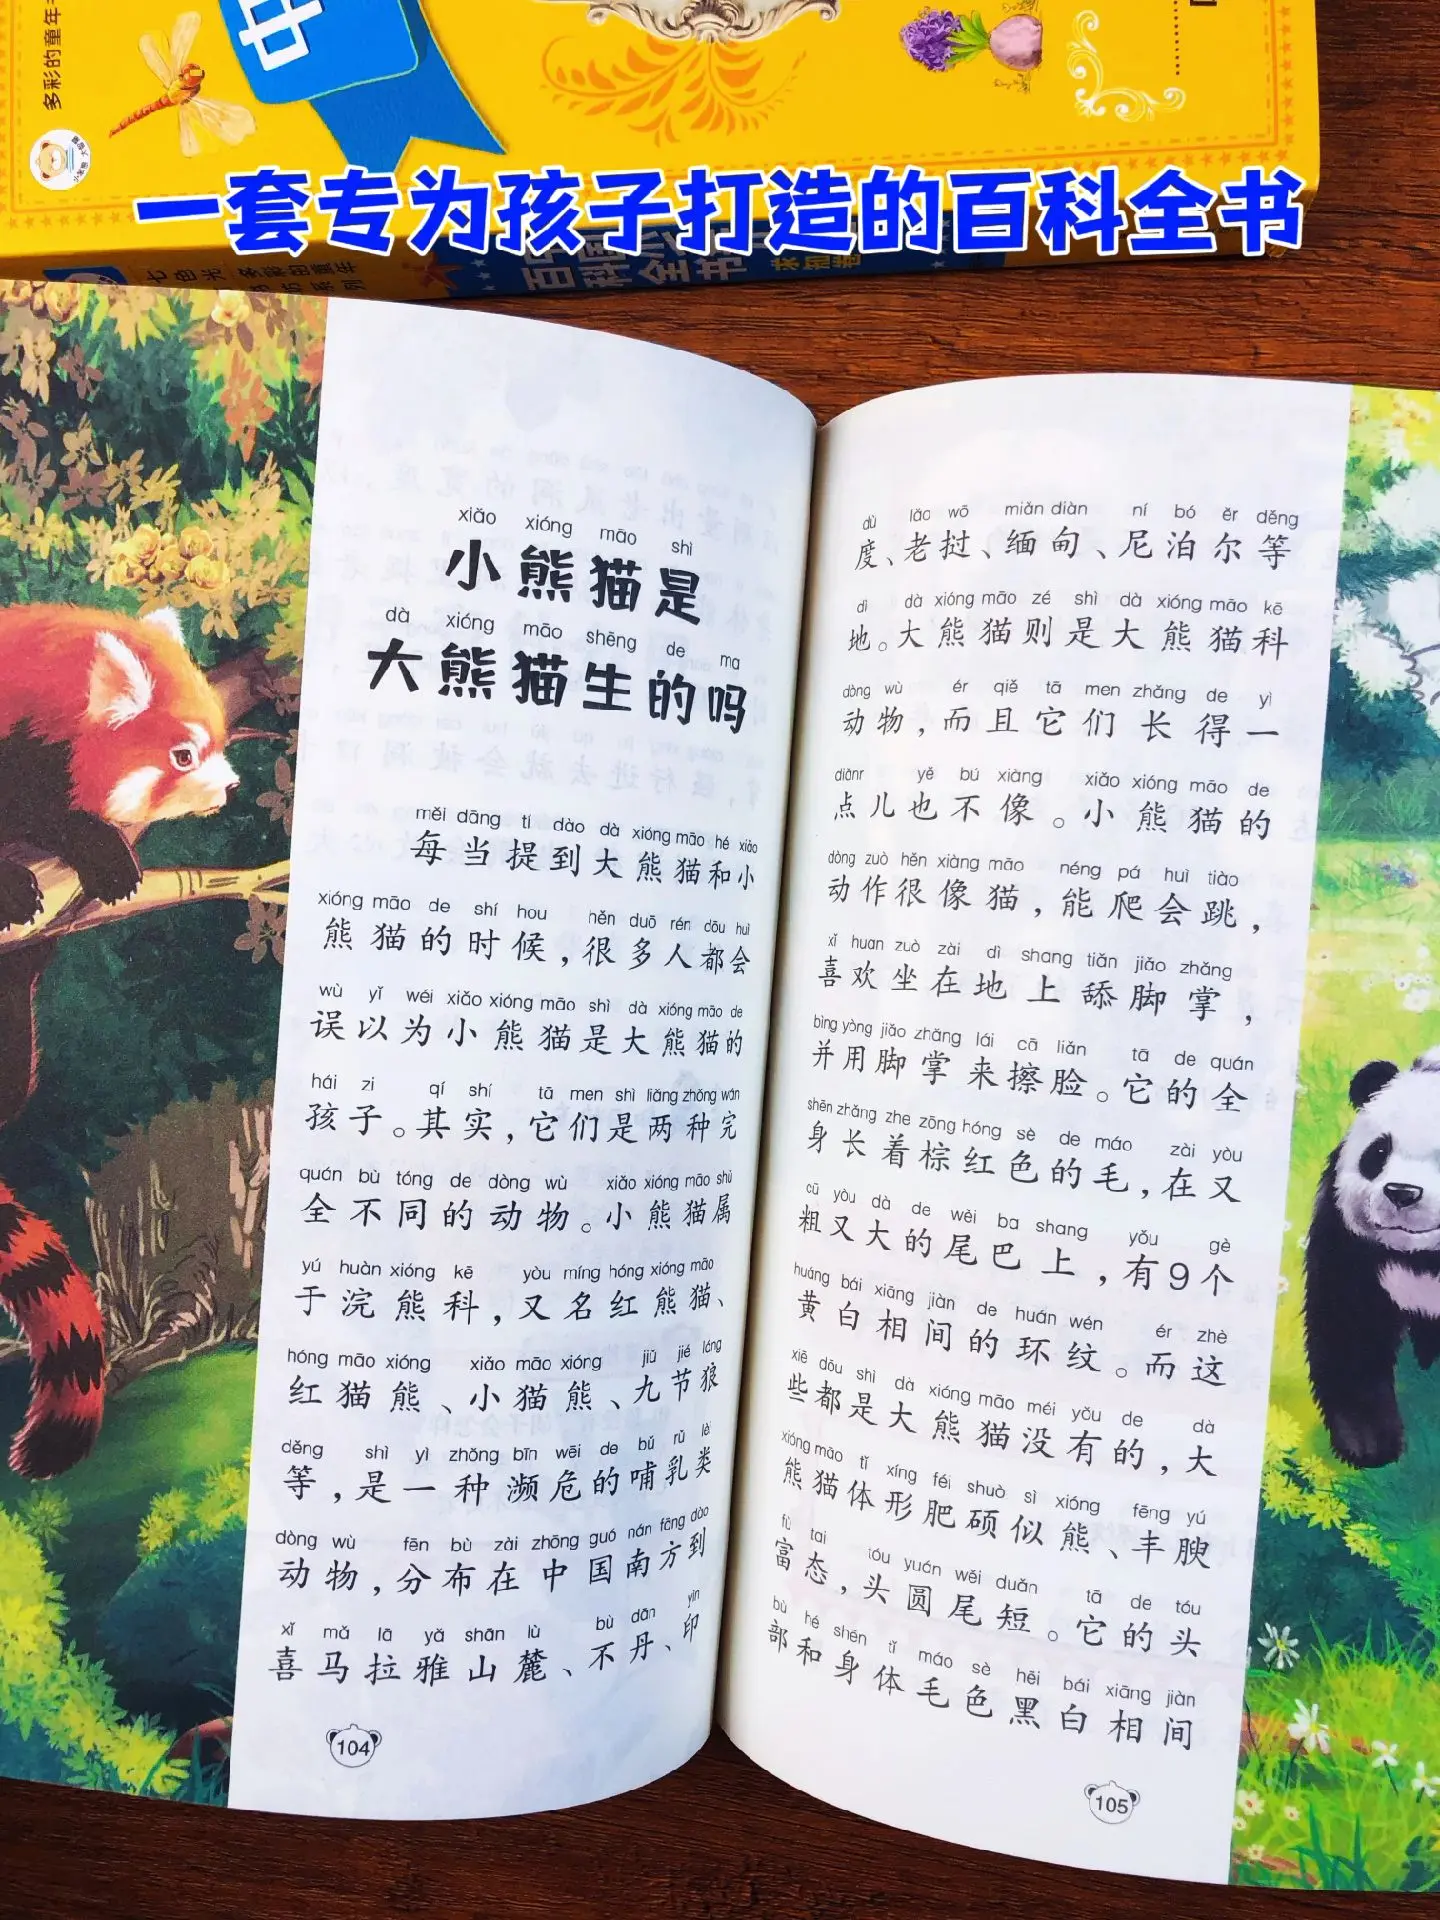 多彩的童年
中
一套专为孩子打造的百科全书
xiǎo xióng māo shì
小熊猫是
dà xióng māo shēng de ma
大熊猫生的吗
měi dāng tí dào dà xióng māo hé xiǎo
每当提到大熊猫和小
xióng māo de shí hou hěn duō rén dōu huì
熊猫的时候，很多人都会
wù yǐ wéi xiǎo xióng māo shì dà xióng māo de
误以为小熊猫是大熊猫的
hái zi qí shí tā men shì liǎng zhǒng wán
孩子。其实，它们是两种完
quán bù tóng de dòng wù xiǎo xióng māo shǔ
全不同的动物。小熊猫属
yú huàn xióng kē yòu míng hóng xióng māo
于浣熊科，又名红熊猫、
hóng māo xióng xiǎo māo xióng jiǔ jié láng
红猫熊、小猫熊、九节狼
děng shì yì zhǒng bīn wēi de bǔ rǔ lèi
等，是一种濒危的哺乳类
dòng wù fēn bù zài zhōng guó nán fāng dào
动物，分布在中国南方到
xǐ mǎ lā yǎ shān lù bù dān yìn
喜马拉雅山麓、不丹、印
104
dù lǎo wō miǎn diàn ní bó ěr děng
度、老挝、缅甸、尼泊尔等
dì dà xióng māo zé shì dà xióng māo kē
地。大熊猫则是大熊猫科
dòng wù ér qiě tā men zhǎng de yì
动物，而且它们长得一
diǎnr yě bú xiàng xiǎo xióng māo de
点儿也不像。小熊猫的
dòng zuò hěn xiàng māo néng pá huì tiào
动作很像猫，能爬会跳，
xǐ huan zuò zài dì shang tiǎn jiǎo zhǎng
喜欢坐在地上舔脚掌，
bìng yòng jiǎo zhǎng lái cā liǎn tā de quán
并用脚掌来擦脸。它的全
shēn zhǎng zhe zōng hóng sè de máo zài yòu
身长着棕红色的毛，在又
cū yòu dà de wěi ba shang yǒu gè
粗又大的尾巴上，有9个
huáng bái xiāng jiàn de huán wén ér zhè
黄白相间的环纹。而这
xiē dōu shì dà xióng māo méi yǒu de dà
些都是大熊猫没有的，大
xióng māo tǐ xíng féi shuò sì xióng fēng yú
熊猫体形肥硕似熊、丰腴
fù tai tóu yuán wěi duǎn tā de tóu
富态，头圆尾短。它的头
bù hé shēn tǐ máo sè hēi bái xiāng jiàn
部和身体毛色黑白相间
105